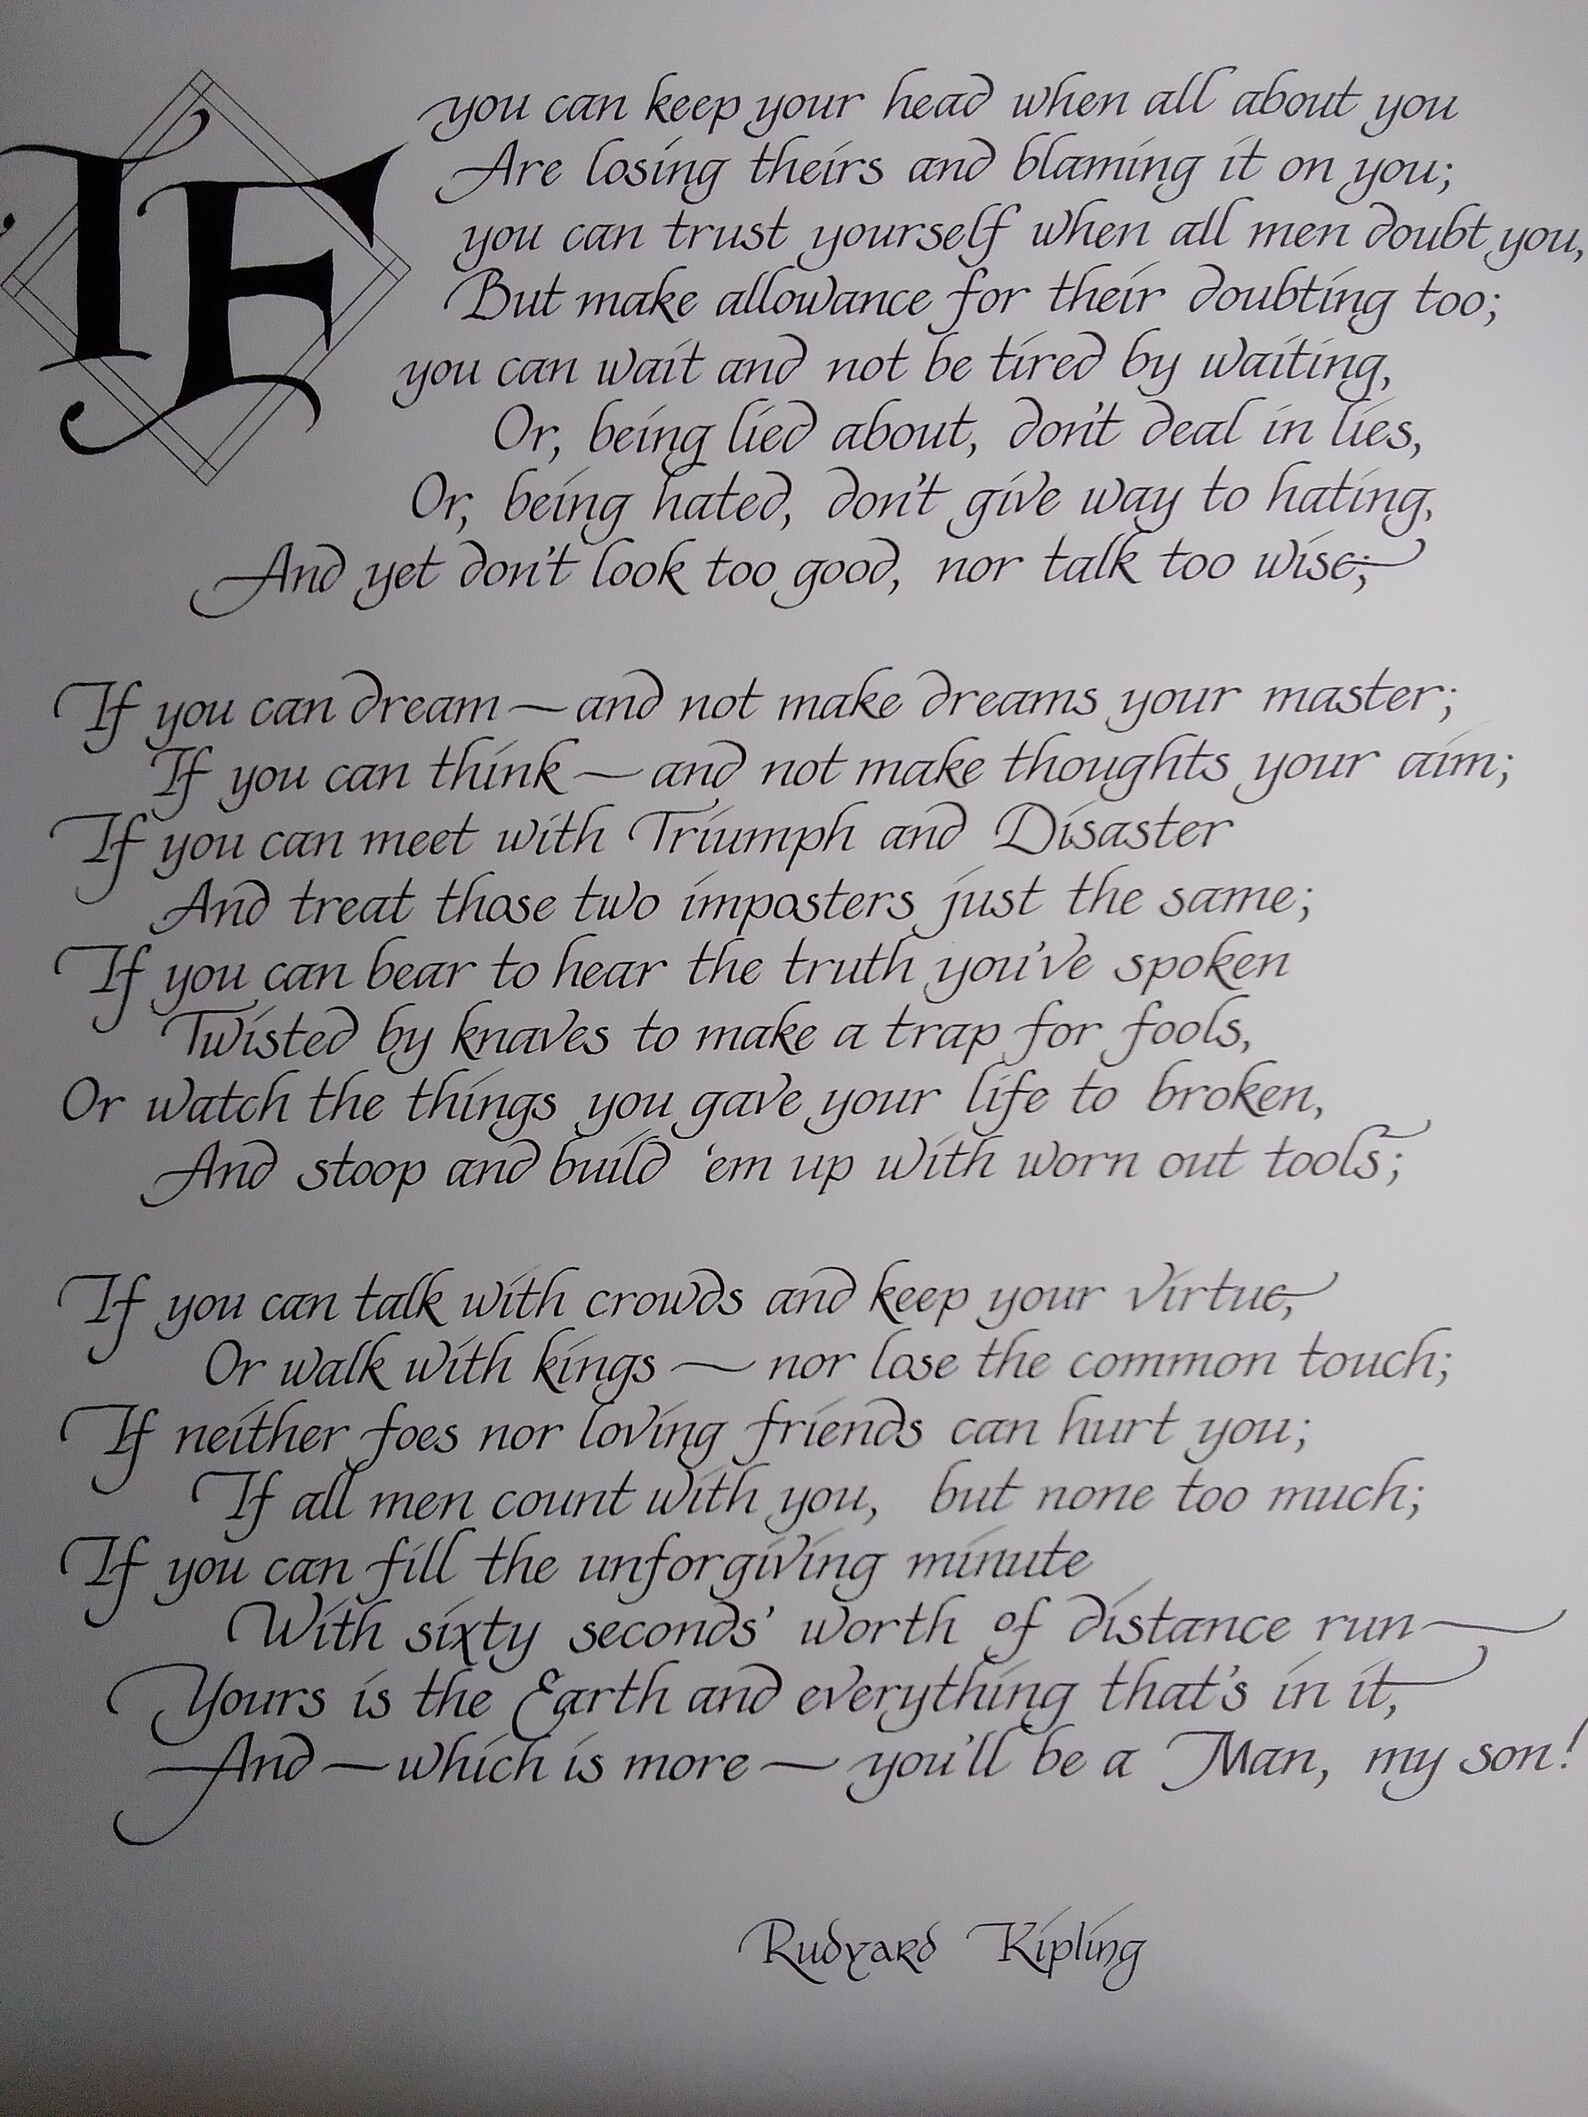 IF you can keep your head when all about you
Are losing theirs and blaming it on you;
you can trust yourself when all men doubt you,
But make allowance for their doubting too;
you can wait and not be tired by waiting,
Or, being lied about, don't deal in lies,
Or, being hated, don't give way to hating,
And yet don't look too good, nor talk too wise;
If you can dream — and not make dreams your master;
If you can think — and not make thoughts your aim;
If you can meet with Triumph and Disaster
And treat those two imposters just the same;
If you can bear to hear the truth you've spoken
Twisted by knaves to make a trap for fools,
Or watch the things you gave your life to broken,
And stoop and build 'em up with worn out tools;
If you can talk with crowds and keep your virtue,
Or walk with kings — nor lose the common touch;
If neither foes nor loving friends can hurt you;
If all men count with you, but none too much;
If you can fill the unforgiving minute
With sixty seconds' worth of distance run —
Yours is the Earth and everything that's in it,
And — which is more — you'll be a Man, my son!
Rudyard Kipling